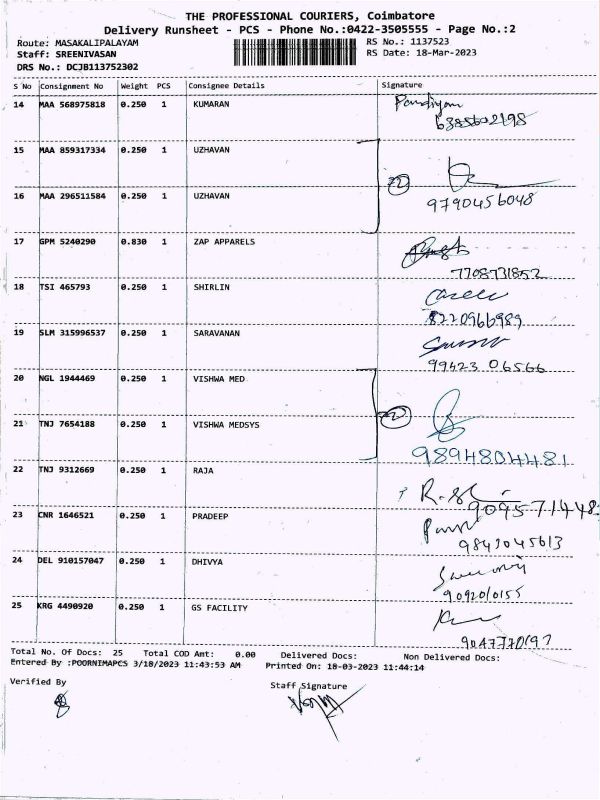 THE PROFESSIONAL COURIERS, Coimbatore
Delivery Runsheet - PCS - Phone No.:0422-3505555 - Page No.:2
Route: MASAKALIPALAYAM RS No.: 1137523
Staff: SREENIVASAN RS Date: 18-Mar-2023
DRS No.: DCJB113752302
S No Consignment No Weight PCS Consignee Details Signature
14 MAA 568975818 0.250 1 KUMARAN Pandiyan
6385602198
15 MAA 859317334 0.250 1 UZHAVAN
16 MAA 296511584 0.250 1 UZHAVAN 9790456048
17 GPM 5240290 0.830 1 ZAP APPARELS
7708731852
18 TSI 465793 0.250 1 SHIRLIN
8220966989
19 SLM 315996537 0.250 1 SARAVANAN
99423 06566
20 NGL 1944469 0.250 1 VISHWA MED
21 TNJ 7654188 0.250 1 VISHWA MEDSYS
9894804481
22 TNJ 9312669 0.250 1 RAJA
909571448
23 CNR 1646521 0.250 1 PRADEEP
9843045613
24 DEL 910157047 0.250 1 DHIVYA
9092010155
25 KRG 4490920 0.250 1 GS FACILITY
9047770197
Total No. Of Docs: 25 Total COD Amt: 0.00 Delivered Docs: Non Delivered Docs:
Entered By :POORNIMAPCS 3/18/2023 11:43:53 AM Printed On: 18-03-2023 11:44:14
Verified By Staff Signature